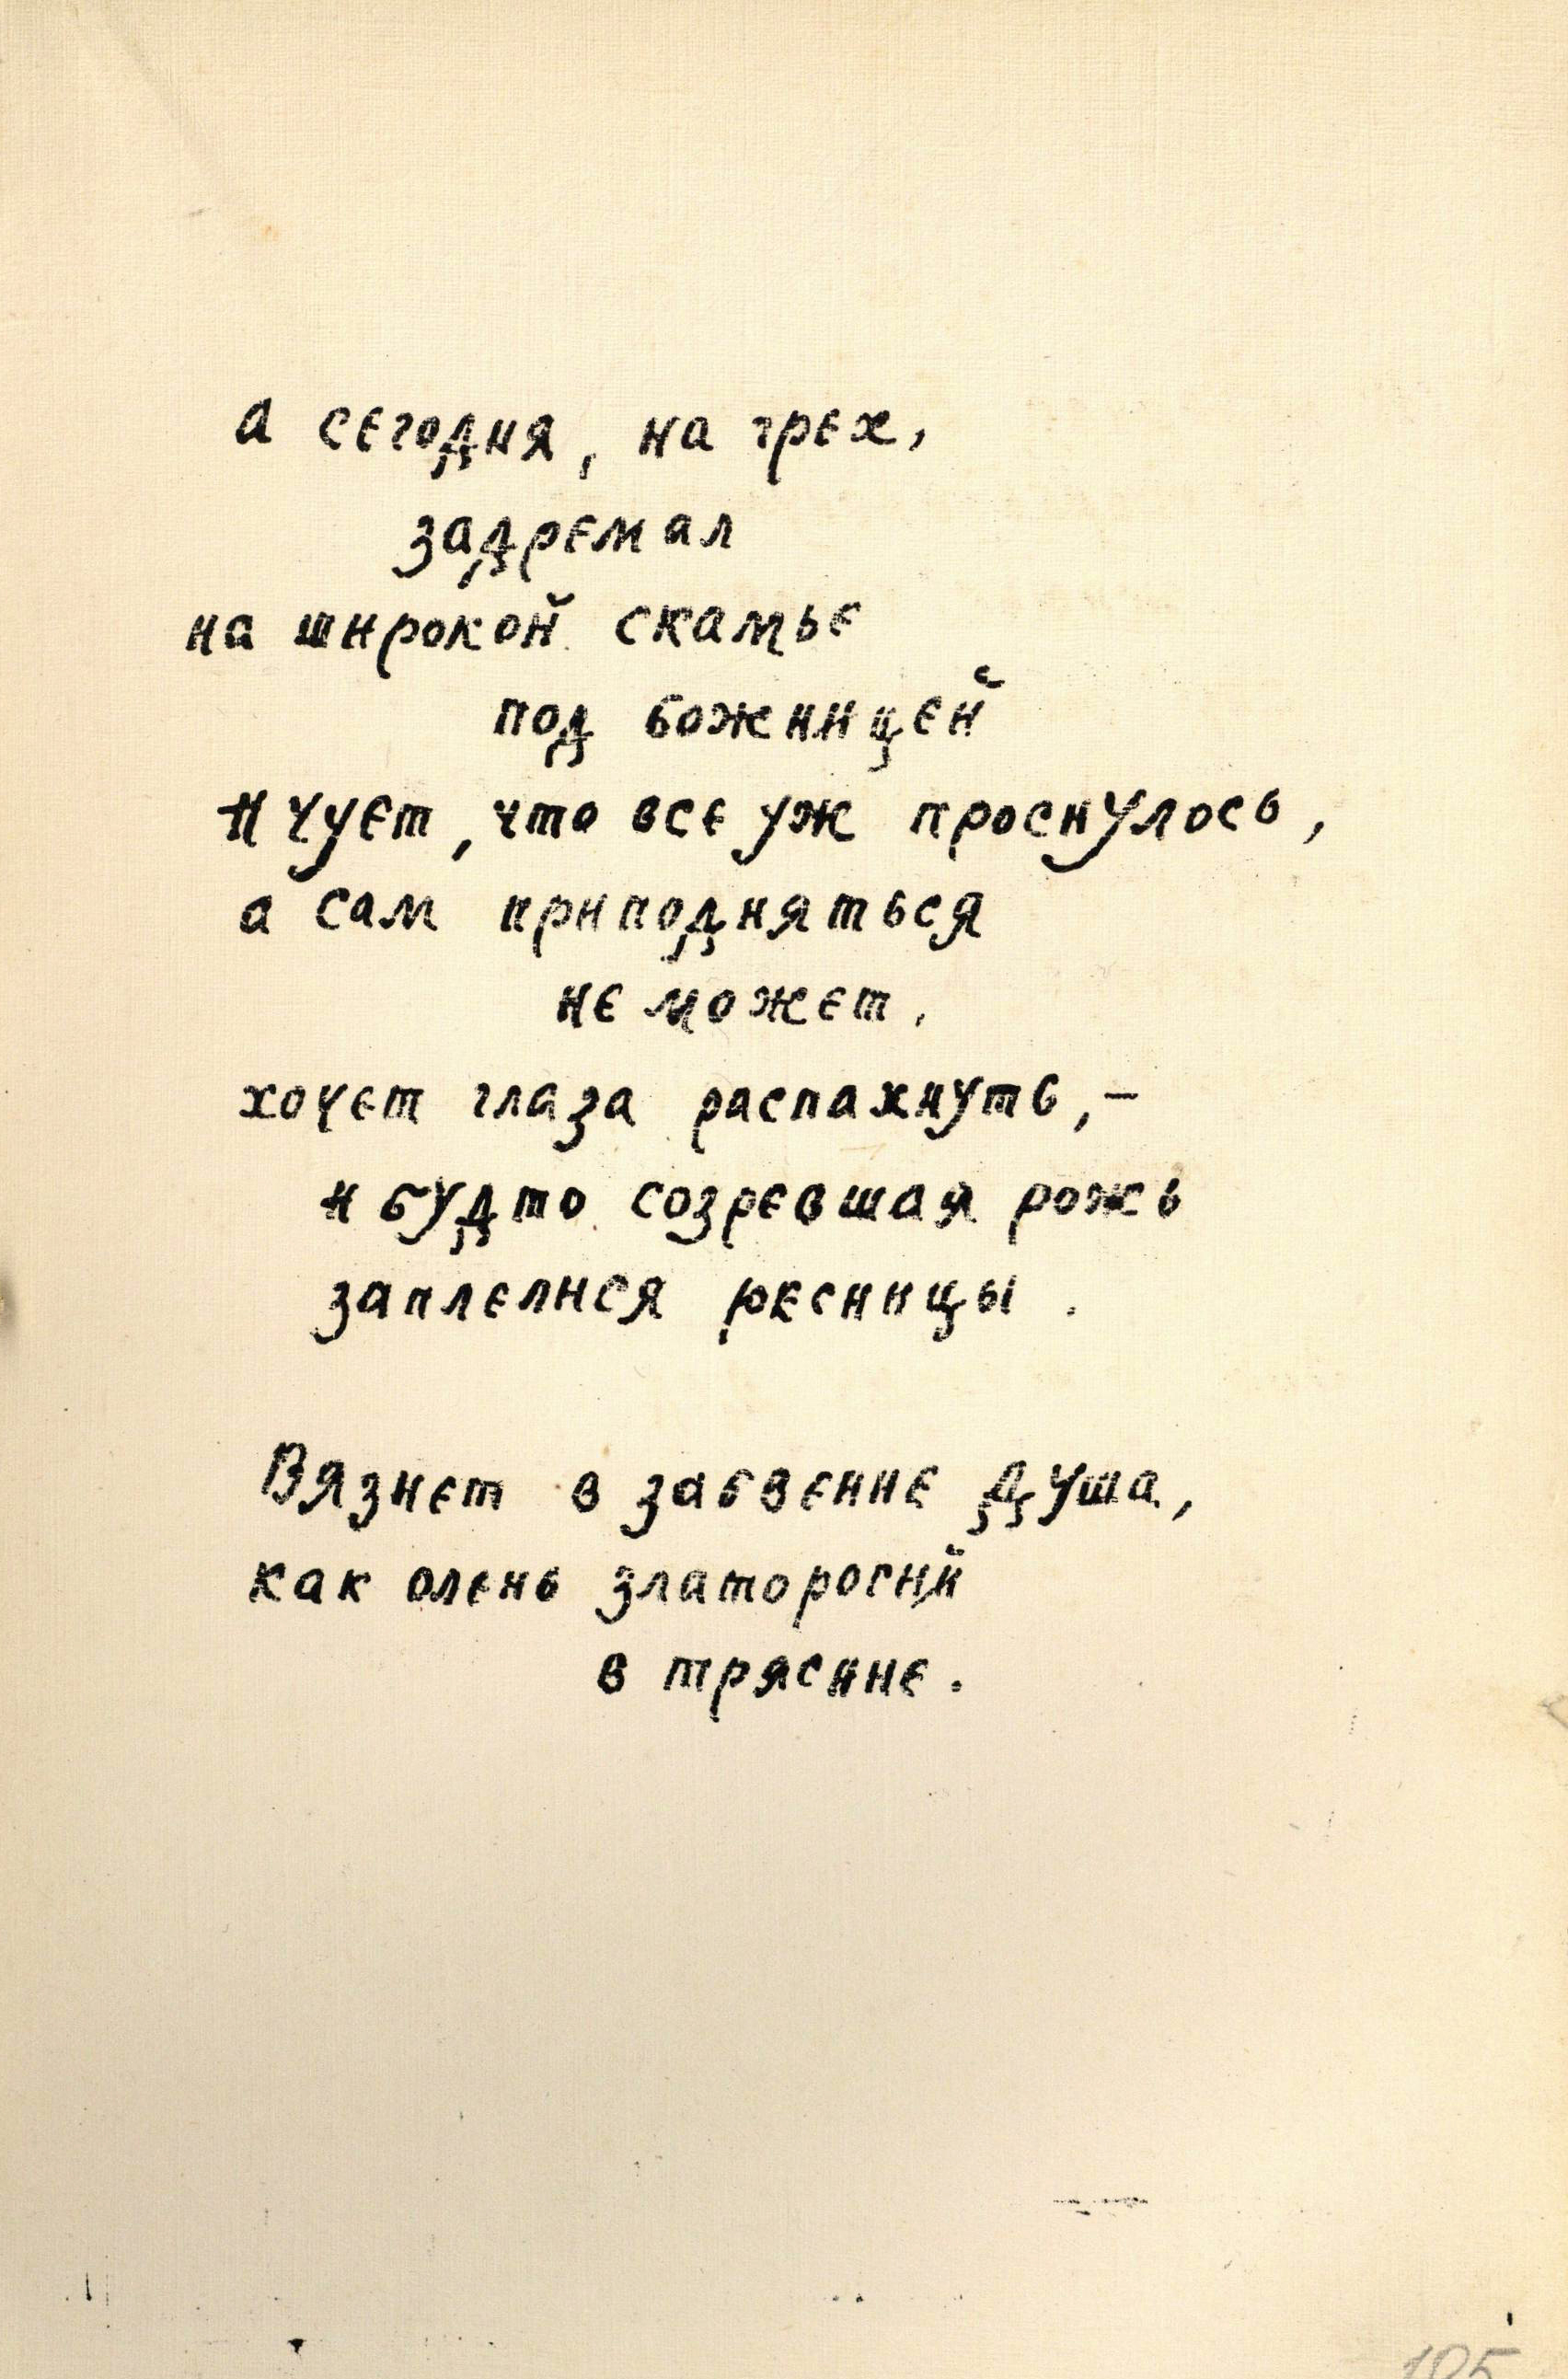 а сегодня, на грех,
задремал
на широкой скамье
под божницей
и чует, что все уж проснулось,
а сам приподняться
не может,
хочет глаза распахнуть,-
и будто созревшая рожь
заплелися ресницы.
Вязнет в забвение душа,
как олень златорогий
в трясине.